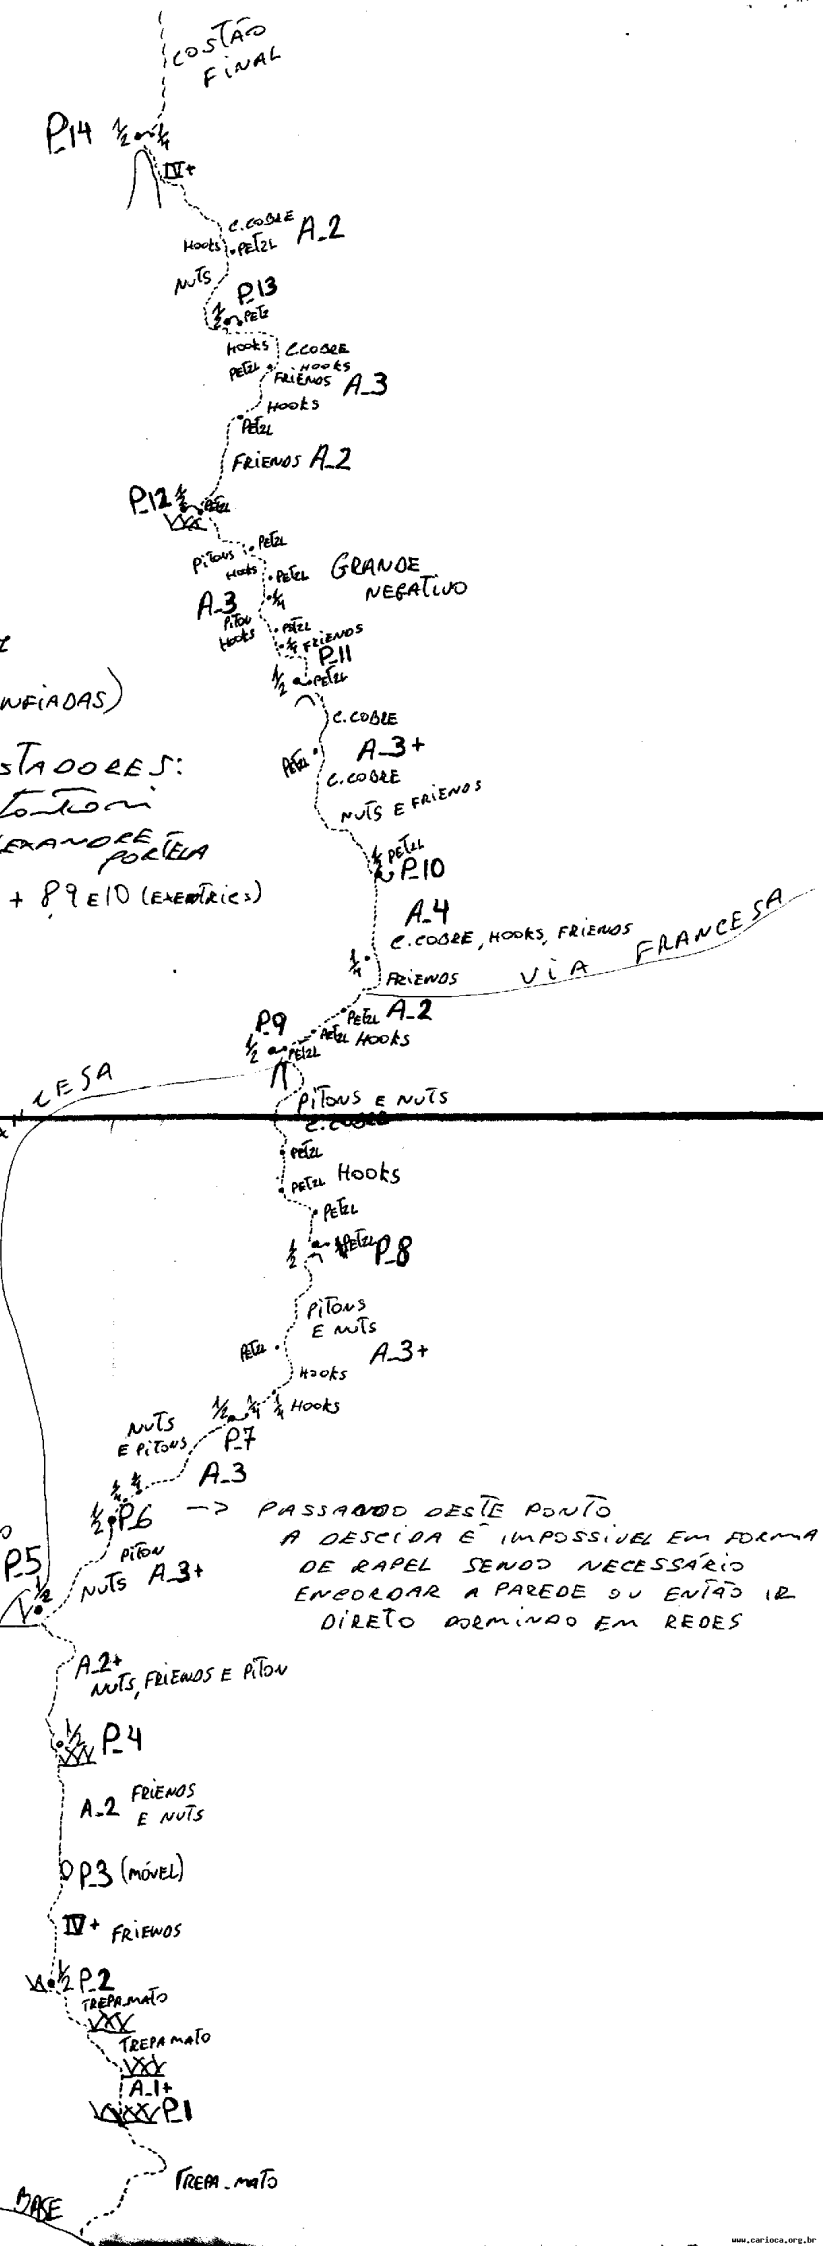 COSTÃO
FINAL
P.14 1/2 1/4
IV+
C.COBRE A.2
HOOKS PETZL
NUTS
P.13
1/2 PETZL
HOOKS C.COBRE
PETZL HOOKS
FRIENDS A.3
HOOKS
PETZL
FRIENDS A.2
P.12 1/2 PETZL
PITONS PETZL
HOOKS PETZL GRANDE
NEGATIVO
A.3 1/4
PITON PETZL
HOOKS 1/4 FRIENDS
P.11
1/2 PETZL
NFIADAS)
C.COBRE
A.3+
PETZL
C.COBRE
STADORES:
NUTS E FRIENDS
EXANDRE
PORTELA
1/2 PETZL
P.10
+ 8,9 E 10 (EXENTRICS)
A.4
C.COBRE, HOOKS, FRIENDS
1/4
FRIENDS VIA FRANCESA
PETZL A.2
P.9 PETZL HOOKS
1/2 PETZL
CESA
PITONS E NUTS
C.COBRE
PETZL
PETZL HOOKS
PETZL
1/2 PETZL P.8
PITONS
E NUTS
PETZL A.3+
HOOKS
1/2 1/4 1/4 HOOKS
NUTS
E PITONS P.7
A.3
1/4 1/4
1/2 P.6 -> PASSANDO DESTE PONTO
A DESCIDA É IMPOSSIVEL EM FORMA
DE RAPEL SENDO NECESSÁRIO
ENCORDAR A PAREDE OU ENTÃO IR
DIRETO DORMINDO EM REDES
PITON
P.5 NUTS A.3+
1/2
A.2+
NUTS, FRIENDS E PITON
1/2 P.4
A.2 FRIENDS
E NUTS
P.3 (MÓVEL)
IV+ FRIENDS
1/2 P.2
TREPA.MATO
TREPA MATO
A.1+
P.1
TREPA.MATO
BASE
www.carioca.org.br